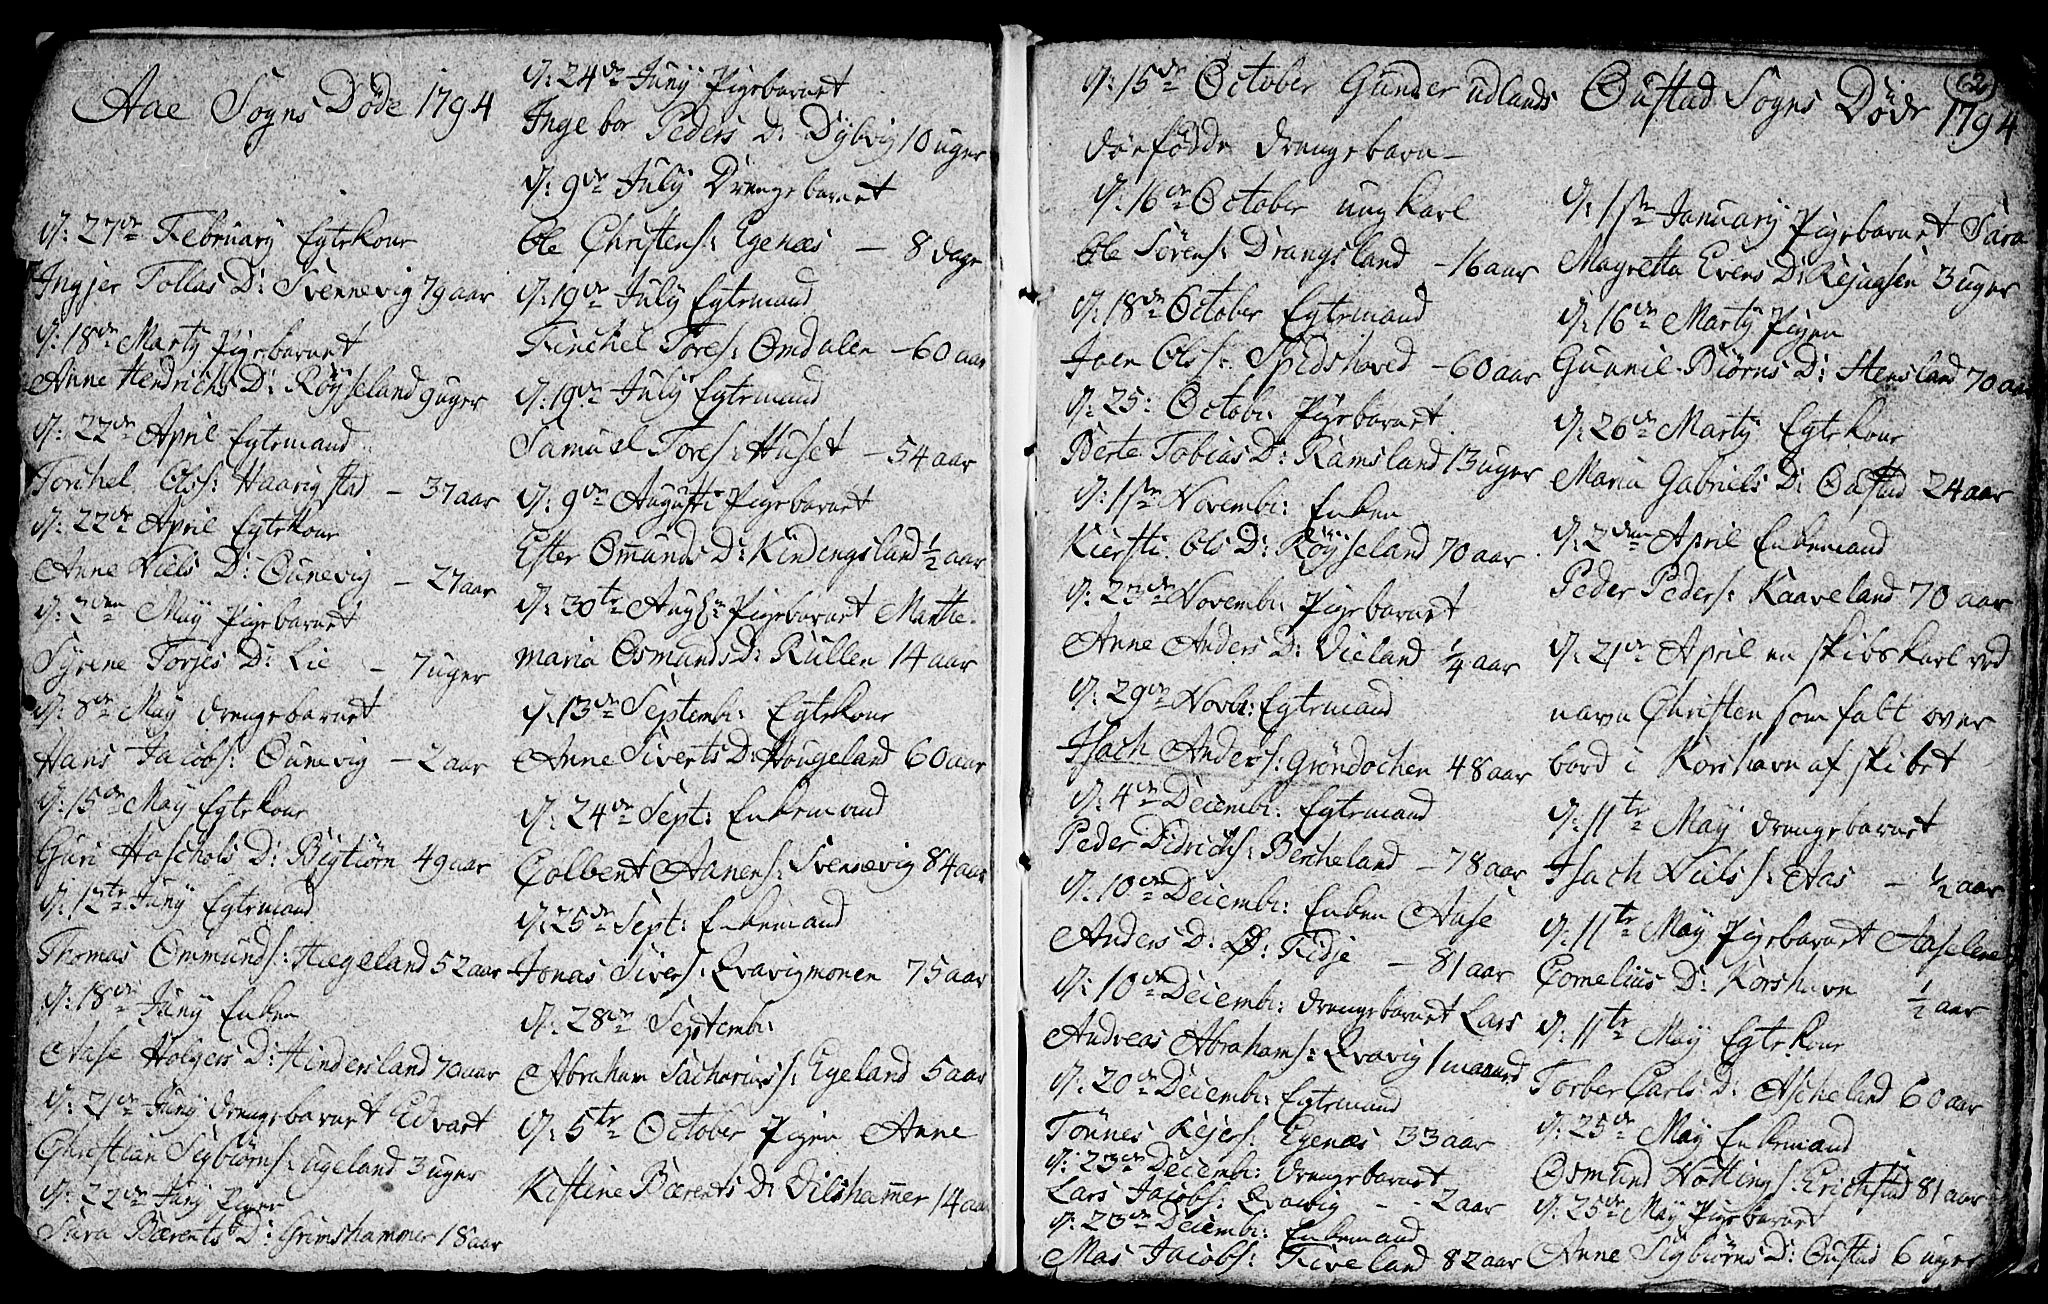 Aae Sogns Döde 1794
d: 27de February Egtekone
Ingjer Tollas D: Svennevig 79 aar
d: 18de Marty Pigebarnet
Anne Hendrichs D: Röÿseland 9 uger
d: 22de April Egtemand
Torchel Ols s: Haarigstad - 37 aar
d: 22de April Egtekone
Anne Niels D: Ounevig - 27 aar
d: 2den Maÿ Pigebarnet
Syrene Torjes D: Lie - 7 uger
d: 8de Maÿ drengebarnet
Hans Jacobs: Ounevig - 2 aar
d: 15de Maÿ Egtekone
Guri Aschols D: Bigtiörn 49 aar
d: 12te Juny Egtemand
Thomas Ommunds: Hægeland 52 aar
d: 18de Juny Enken
Aase Holgers D: Hindersland 70 aar
d: 21de Juny drengebarnet Edvart
Christian Sigbiörns: ugeland 3 uger
d: 22de Juny Pigen
Sara Bærents D: Grimshammer 18 aar
d: 24de Juny Pigebarnet
Ingebor Peders D: Dÿbvig 10 uger
d: 9de July Drengebarnet
Ole Christens: Egenæs - 8 dage
d: 19de July Egtemand
Tinchel Tores: Omdalen - 60 aar
d: 19de July Egtemand
Samuel Tores: Huset - 54 aar
d: 9de Augusti Pigebarnet
Ester Omunds D: Kindengsland ½ aar
d: 30te Aug: Pigebarnet Marthe-
maria Osmunds D: Rullen 14 aar
d: 13de Septemb: Egtekone
Anne Siverts D: Hougeland 60 aar
d: 24de Sept: Enkemand
Colbent Aanens: Svennevig 84 aar
d: 25de Sept: Enkemand
Jonas Sivers: Qvavigmonen 75 aar
d: 28de Septemb:
Abraham Sacharias s: Egeland 5 aar
d: 5te October Pigen Anne
Kistine Bærents D: Vilshammer 14 aar
d: 15de October Gunder udlands
dödfödde drengebarn -
d: 16de October ungkarl
Ole Sörens: Drangsland - 16 aar
d: 18de October Egtemand
Joen Ols s: Spidshoved - 60 aar
d: 25: Octob: Pigebarnet
Berte Tobias D: Ramsland 13 uger
d: 1ste Novemb: Enken
Kiersti Ols D: Röÿseland 70 aar
d: 23de Novemb: Pigebarnet
Anne Anders D: Vieland ¼ aar
d: 29de Novb: Egtemand
Isach Anders: Gröndochen 48 aar
d: 4de Decemb: Egtemand
Peder Didrichs: Bercheland - 78 aar
d: 10de Decemb: Enken Aase
Anders D: Ø: Kidje - 81 aar
d: 10de Decemb: drengebarnet Lars
Andreas Abrahams: Qvavig 1 maaned
d: 20de Decemb: Egtemand
Tönnes Rejers: Egenæs 33 aar
d: 23de Decemb: drengebarnet
Lars Jacobs: Qvavig - - 2 aar
d: 23de Decemb: Enkemand
Mas Jacobs: Fiveland 82 aar
62
Oustad Sogns Döde 1794
d: 1ste January Pigebarnet Sara
Magretta Evens D: Rejnasen 3 uger
d: 16de Marty Pigen
Gunnil Biörns D: Hensland 70 aar
d: 26de Marty Egtekone
Maria Gabriels D: Oustad 24 aar
d: 2den April Enkemand
Peder Peders: Kaaveland 70 aar
d: 21de April en skibskarl ved
navn Christen som falt over
bord i Korshavn af skibet
d: 11te Maÿ drengebarnet
Isach Niels s: Aas - ½ aar
d: 11te Maÿ Pigebarnet Aaselene
Cornelius D: Korshavn ½ aar
d: 11te Maÿ Egtekone
Torber Carls D: Ascheland 60 aar
d: 25de Maÿ Enkemand
Osmund Nottings: Erichstad 81 aar
d: 25de Maÿ Pigebarnet
Anne Sigbiörns D: Oustad 6 uger